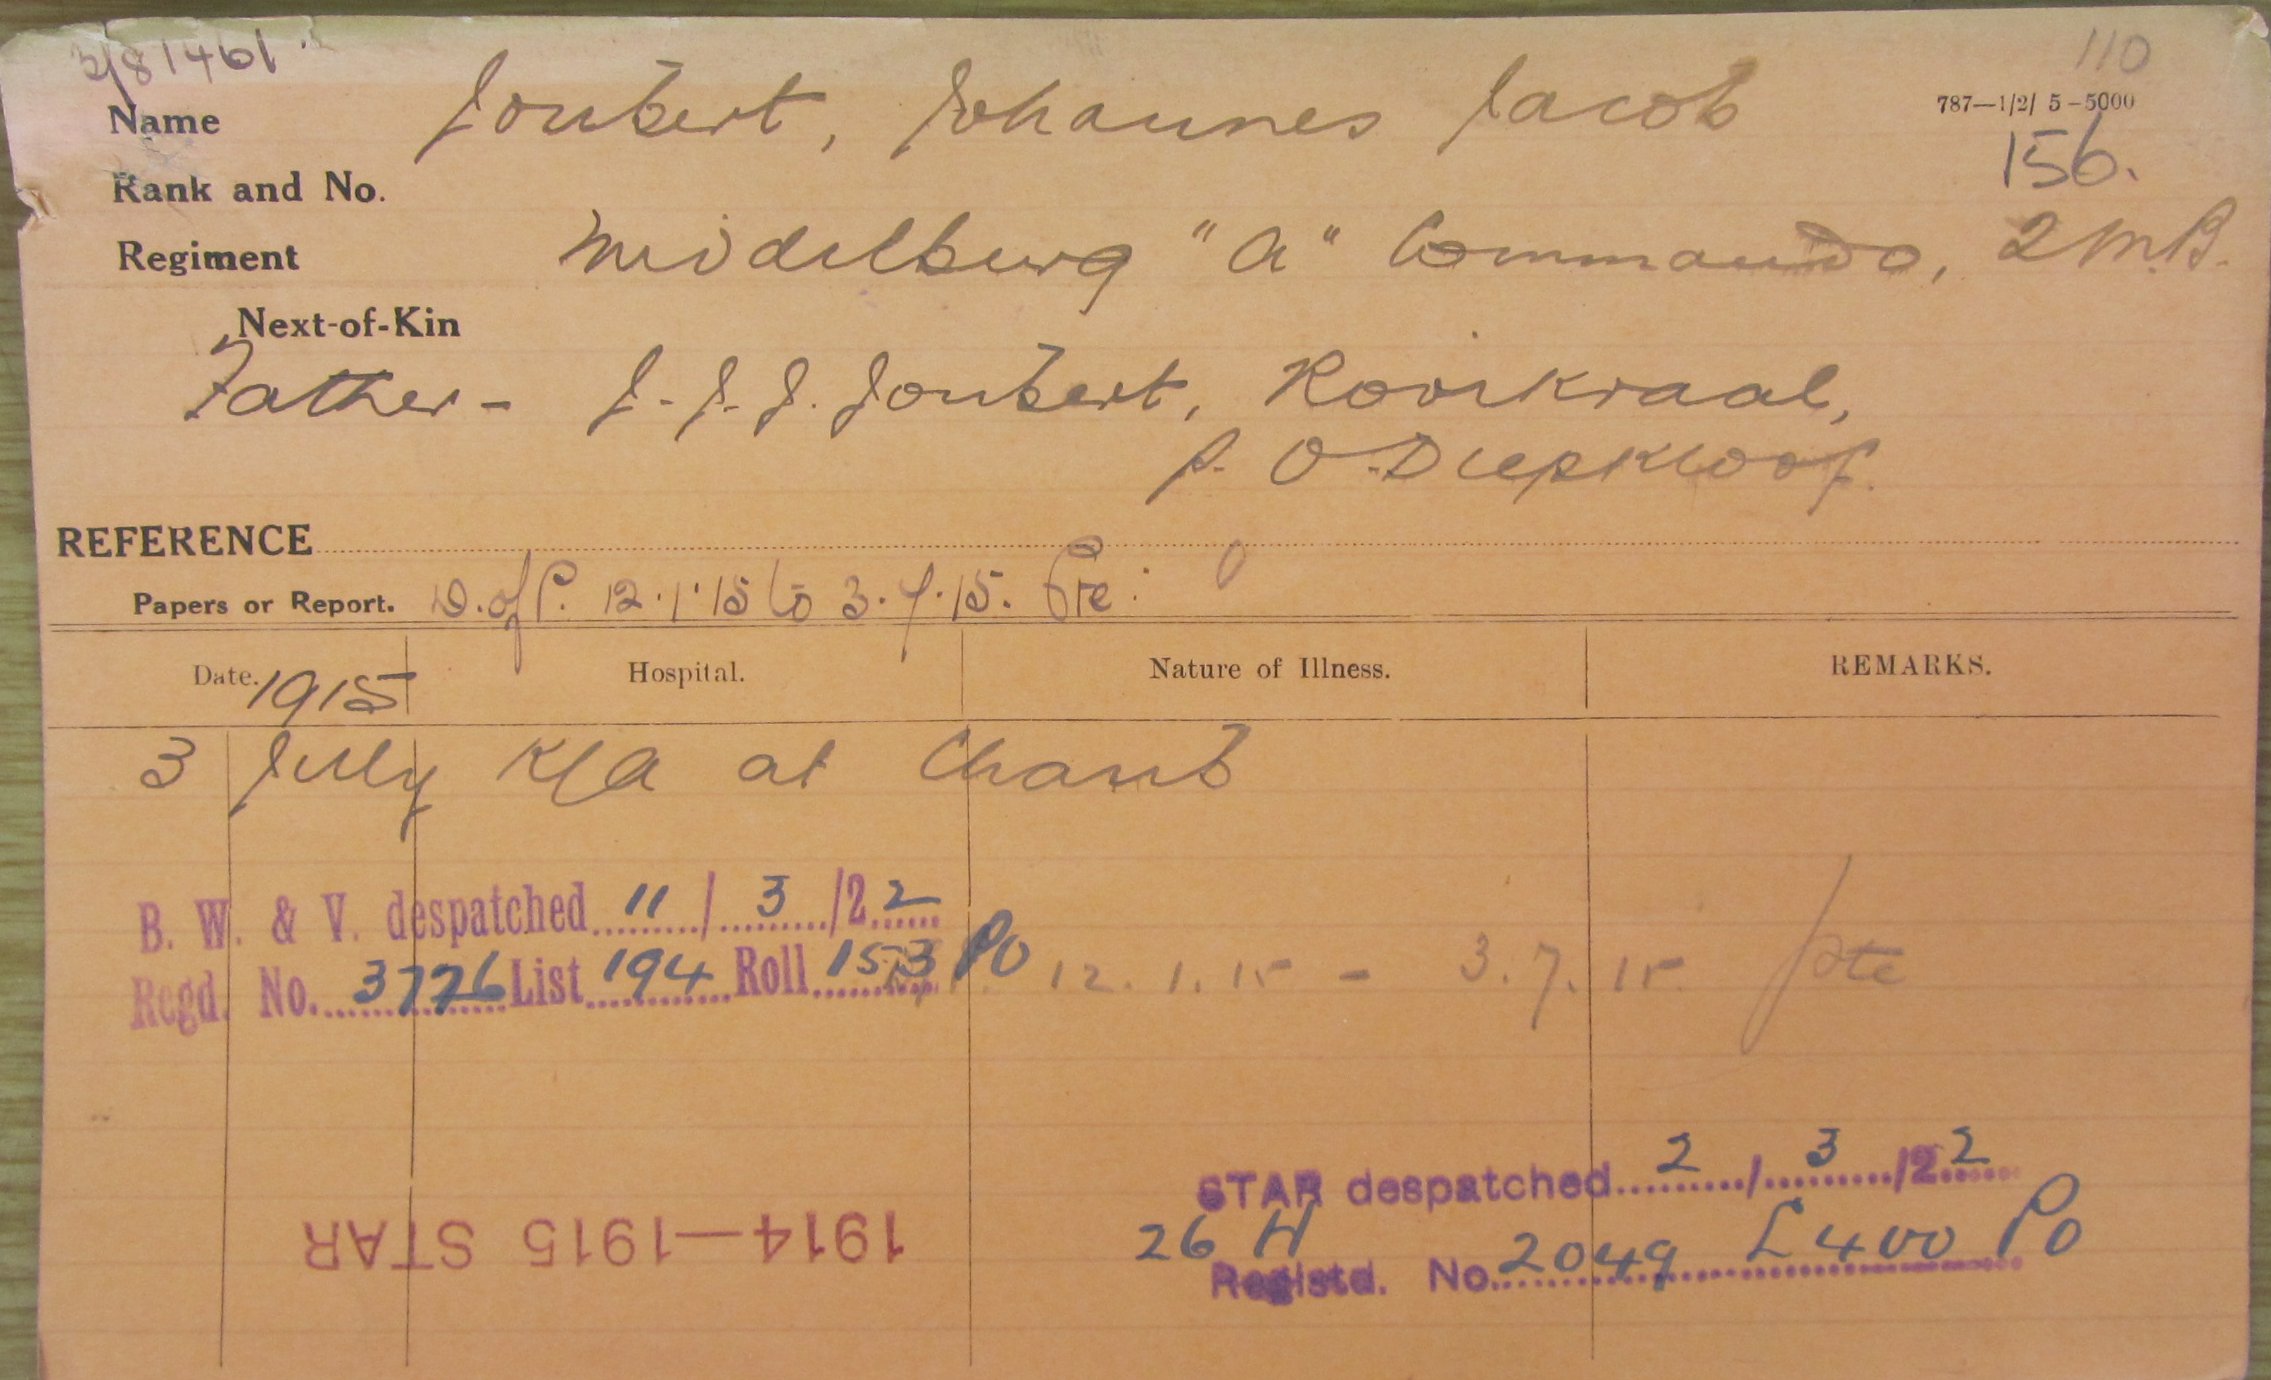 3/81461
110
Name Joubert, Johannes Jacob
787—1/2/ 5–5000
156.
Rank and No.
Regiment Middelburg "A" Commando, 2 M.B.
Next-of-Kin
Father - J. J. J. Joubert, Rooikraal,
P. O. Diepkloof.
REFERENCE
Papers or Report. D. of P. 12.1.15 to 3.7.15. Pte.
Date. 1915 Hospital. Nature of Illness. REMARKS.
3 July K/A at Chaub
B. W. & V. despatched 11/3/22
Regd. No. 3776 List 194 Roll 153 PO
12.1.15 - 3.7.15. Pte
STAR despatched 2/3/22
1914—1915 STAR
26 H
Registd. No. 2049 L 400 PO